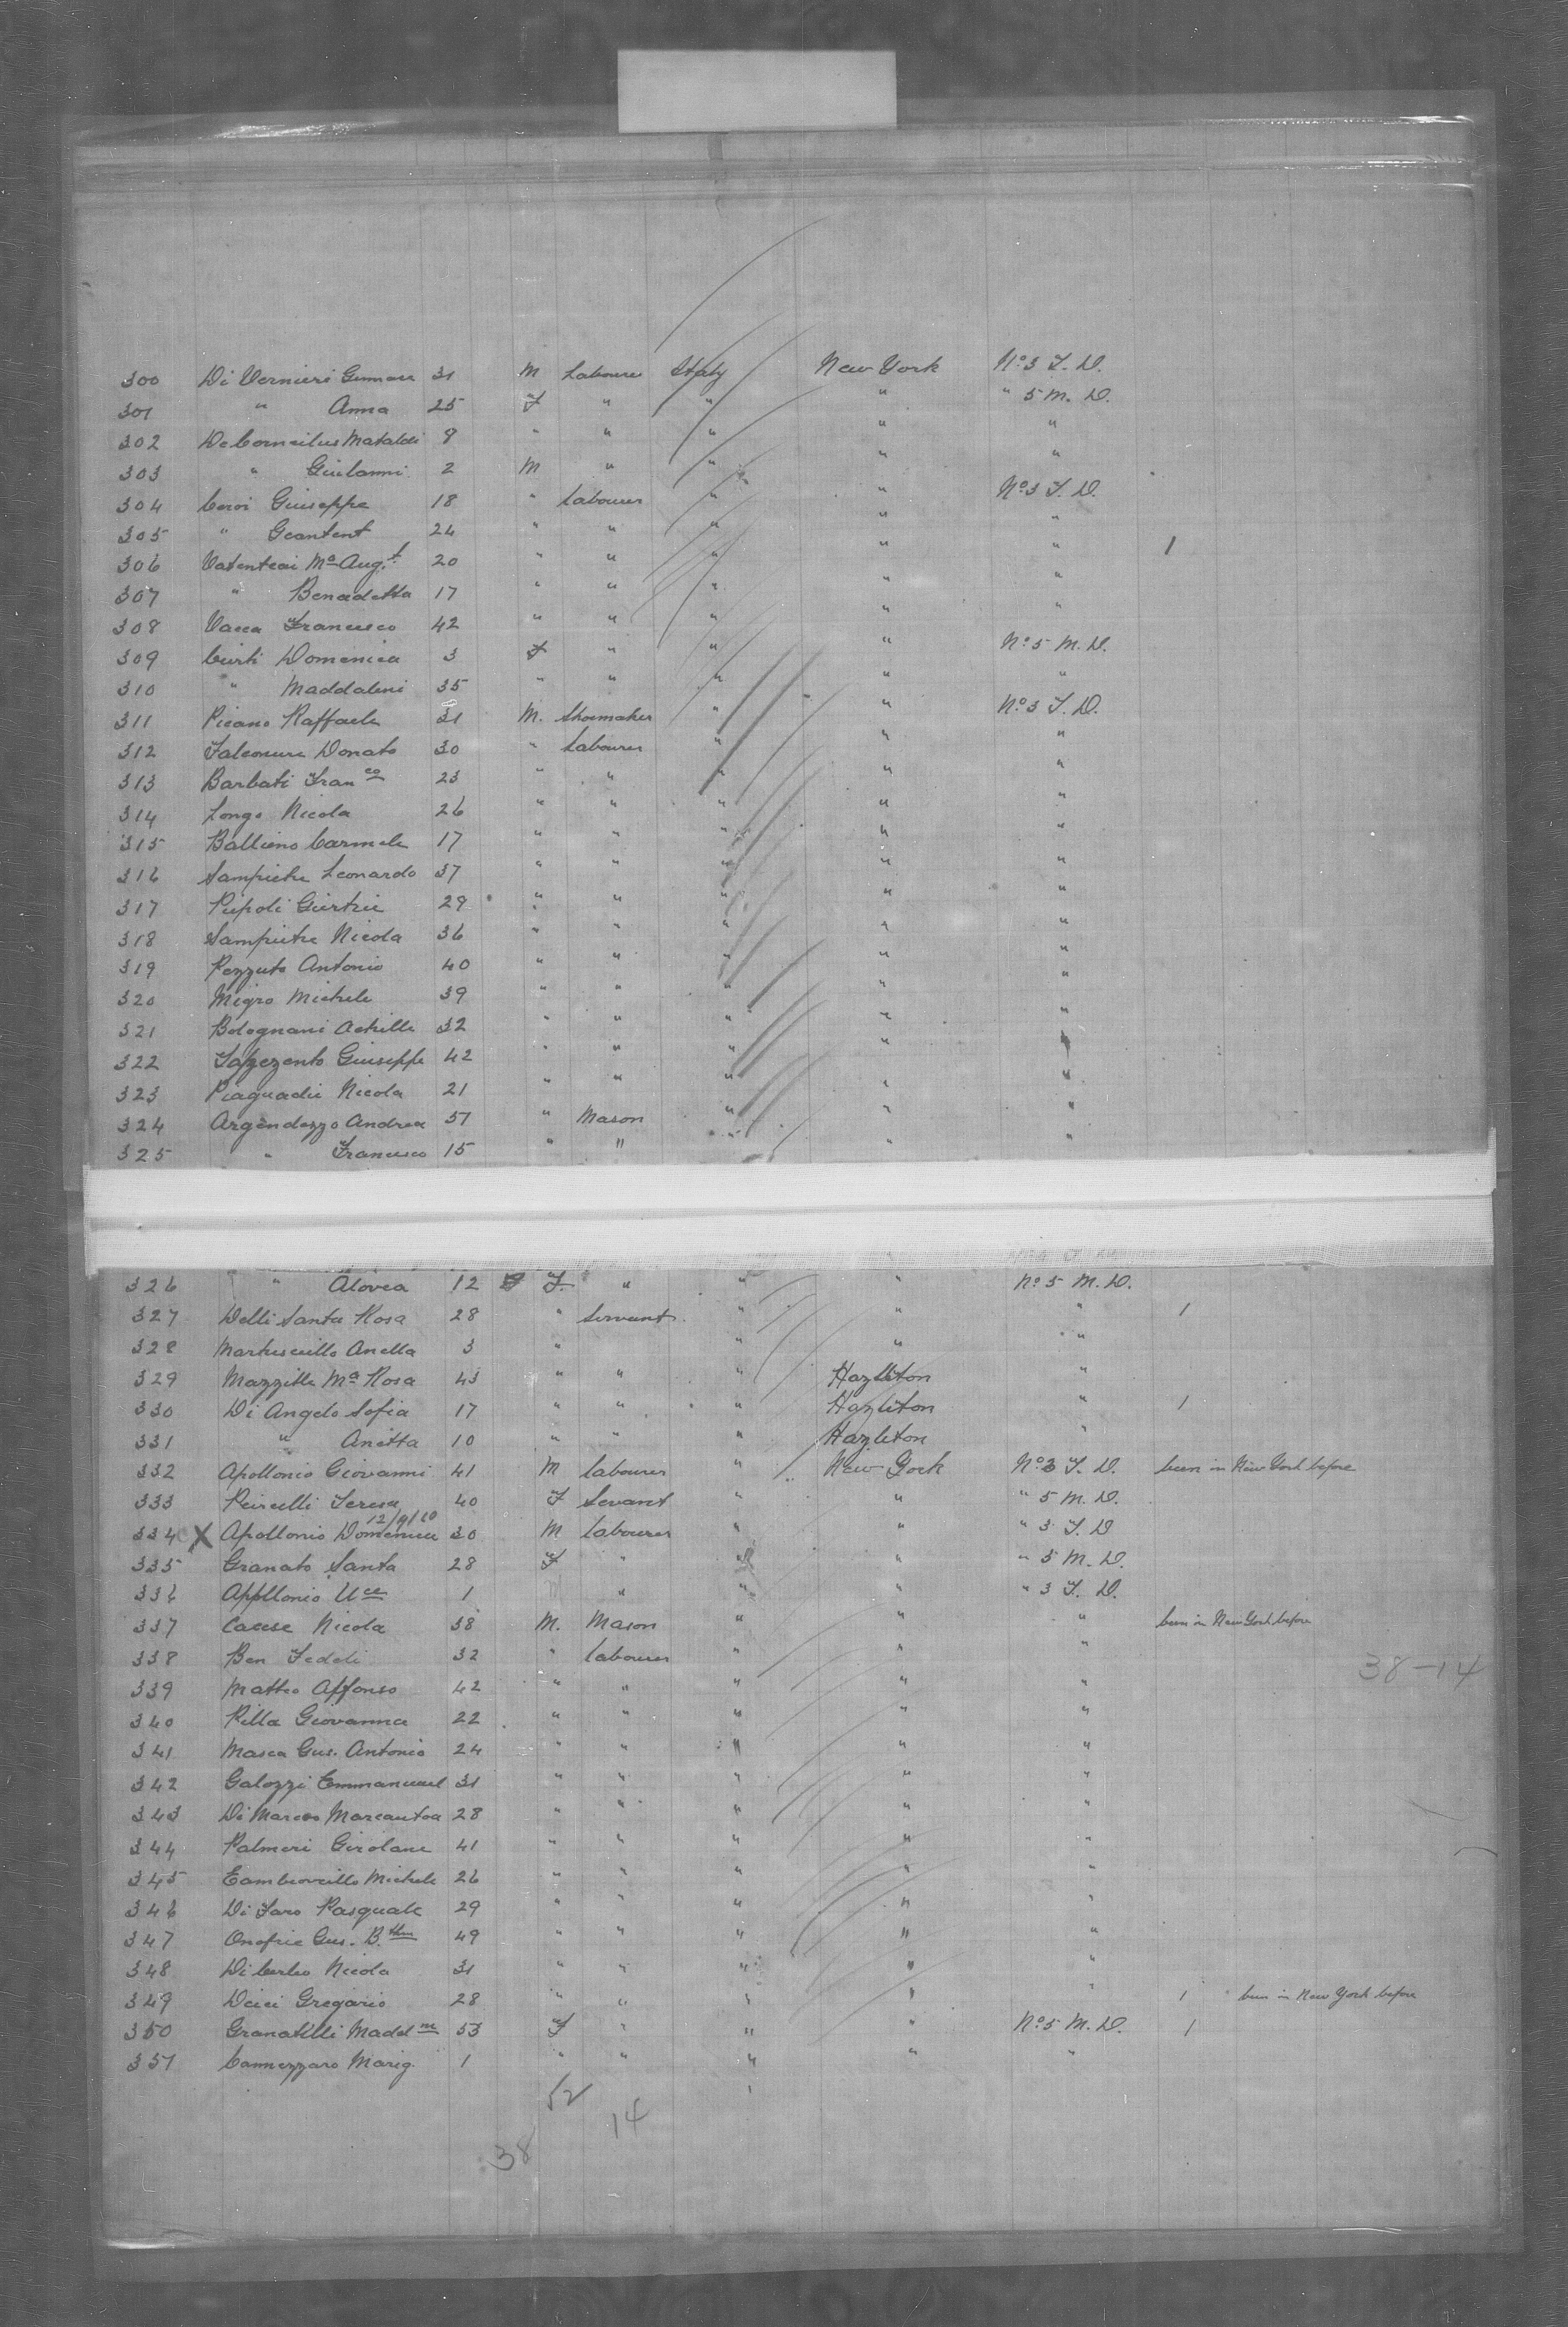 300 Di Vernieri Gennari 31 M Labourer Italy New York No 3 S. D.
301 " Anna 25 F " " " " 5 M. D.
302 De Corneilus Mataldi 8 " " " " "
303 " Giulanni 2 M " " " "
304 Ceroi Giuseppe 18 " Labourer " " No 3 S. D.
305 " 24 " " " " "
306 Ma Aug.t 20 " " " " " 1
307 " Benedetta 17 " " " " "
308 Vacca Francesco 42 " " " " "
309 Curti Domenica 3 F " " " No 5 M. D.
310 " Maddaleni 35 " " " " "
311 Picano Raffaele 31 M. Shoemaker " " No 3 S. D.
312 Falconure Donato 30 " Labourer " " "
313 Barbati Franco 23 " " " " "
314 Longo Nicola 26 " " " " "
315 Ballieno Carmele 17 " " " " "
316 Sampietre Leonardo 37 " " " " "
317 Pupoli 29 " " " " "
318 Sampietre Nicola 36 " " " " "
319 Pezzuto Antonio 40 " " " " "
320 Migro Michele 39 " " " " "
321 Bolognani Achille 32 " " " " "
322 Giuseppe 42 " " " " "
323 Piaguadie Nicola 21 " " " " "
324 Argendezzo Andrea 51 " Mason " " "
325 " Francesco 15 " " " " "
326 " Alovea 12 F. " " " No 5 M. D.
327 Delli Santa Rosa 28 " Servant " " " 1
328 Martuscullo Anella 3 " " " "
329 Mazzille Ma Rosa 43 " " " Hazleton "
330 Di Angelo Sofia 17 " " " Hazleton " 1
331 " Anetta 10 " " " Hazleton "
332 Apollonio Giovanni 41 M Labourer " New York No 3 S. D. been in New York before
333 Peircelli Teresa 40 F Servant " " " 5 M. D.
12/9/10
334 X Apollonio Domenica 30 M Labourer " " " 3 S. D
335 Granato Santa 28 F " " " " 5 M. D.
336 Apollonio Uce 1 M " " " " 3 S. D.
337 Cacese Nicola 38 M. Mason " " " been in New York before
338 Ben Fedeli 32 " Labourer " " "
38-14
339 Matteo Affonso 42 " " " " "
340 Rilla Giovanna 22 " " " " "
341 Masca Gus. Antonio 24 " " " " "
342 Galozzi Emmanuel 31 " " " " "
343 Di Marcos Marcantoa 28 " " " " "
344 Palmeri Girolane 41 " " " " "
345 Michele 26 " " " " "
346 Di Faro Pasquale 29 " " " " "
347 Onofrie Gus. B. 49 " " " " "
348 Di Carlo Nicola 31 " " " " "
349 Daici Gregario 28 " " " " " 1 been in New York before
350 Granatilli Maddne 53 F " " " No 5 M. D. 1
351 Cannezzaro Marig. 1 " " " " "
52
14
38